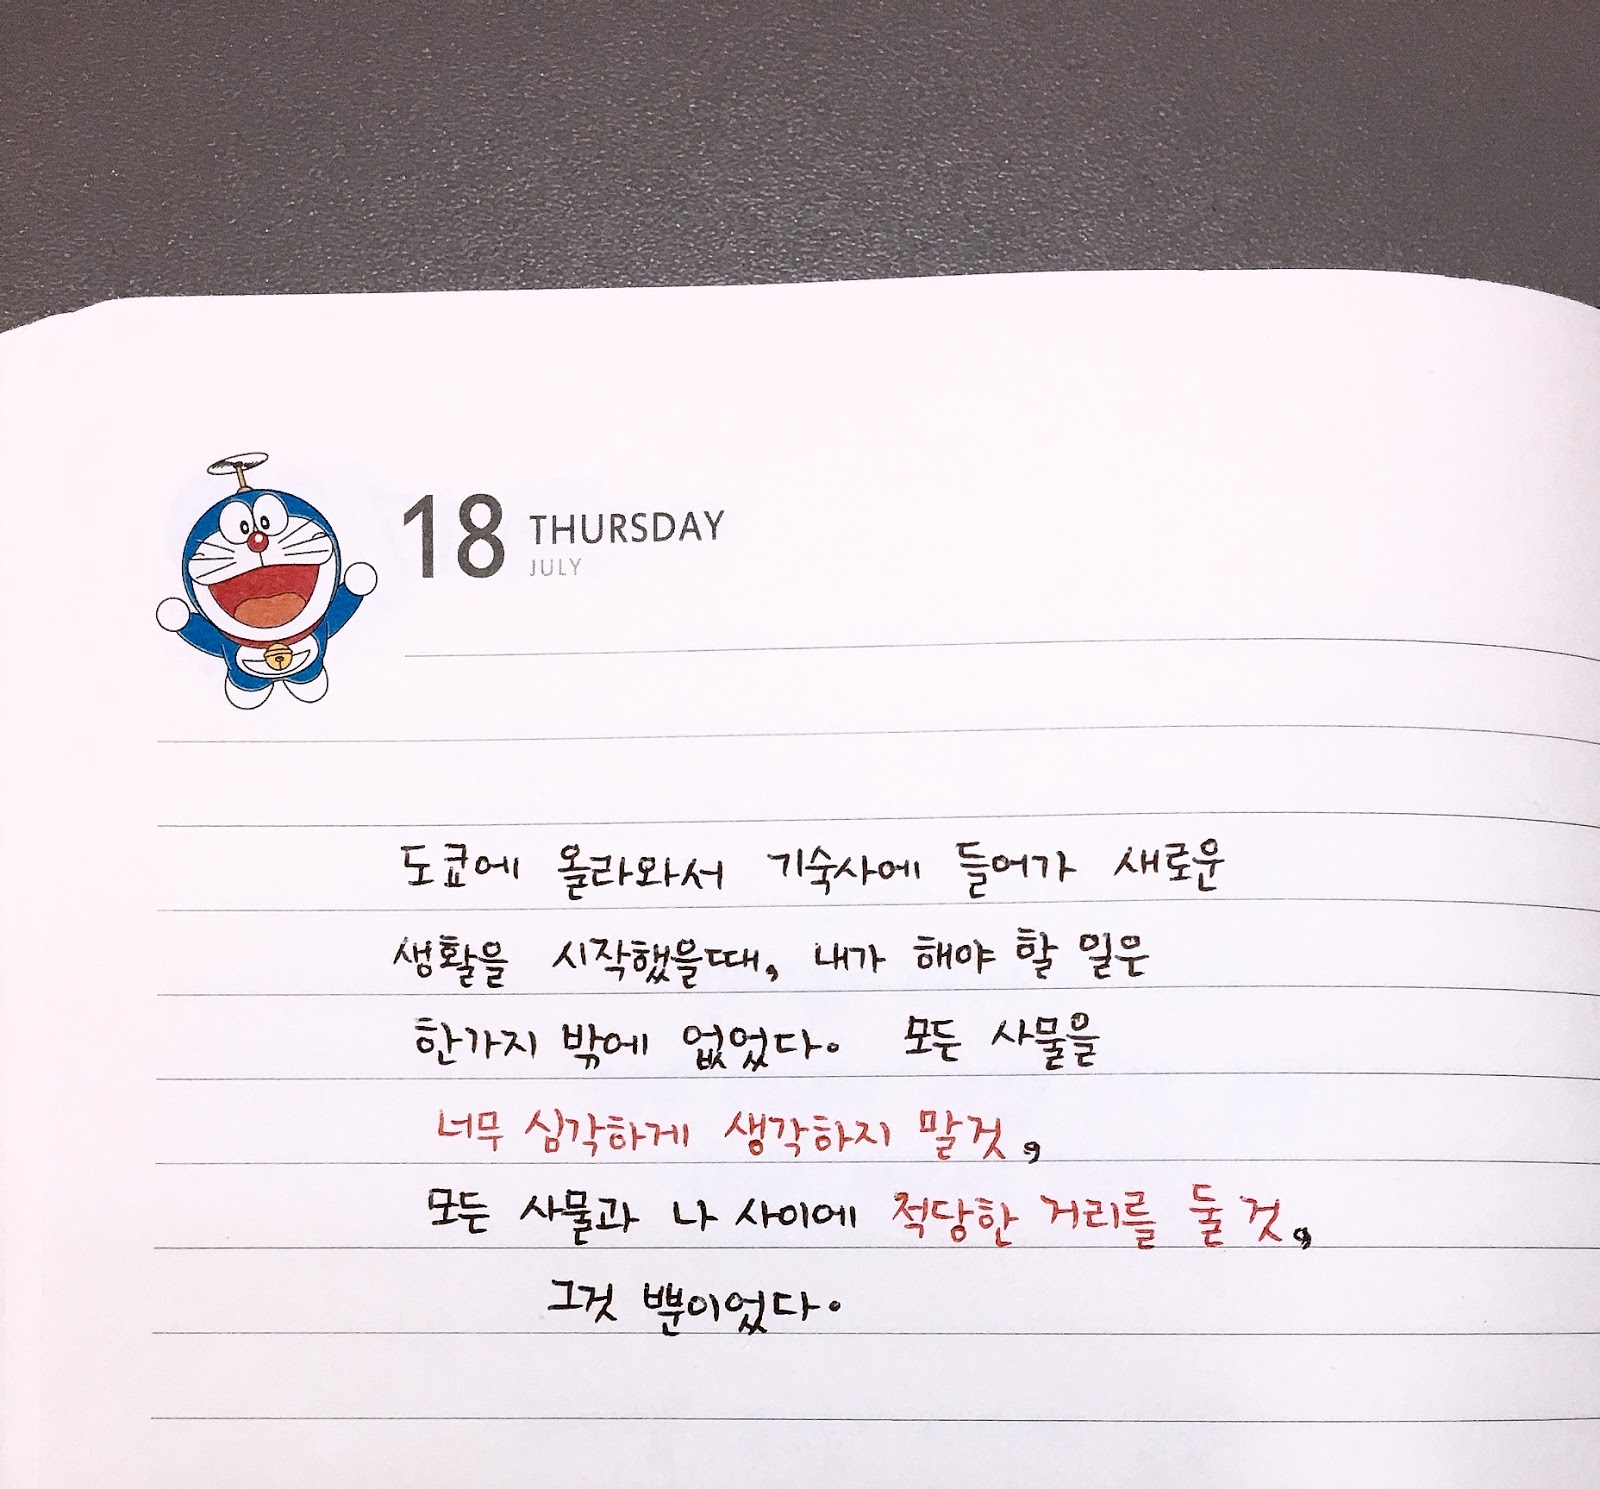 18 THURSDAY
JULY
도쿄에 올라와서 기숙사에 들어가 새로운
생활을 시작했을때, 내가 해야 할 일은
한가지 밖에 없었다. 모든 사물을
너무 심각하게 생각하지 말것,
모든 사물과 나 사이에 적당한 거리를 둘 것,
그것 뿐이었다.